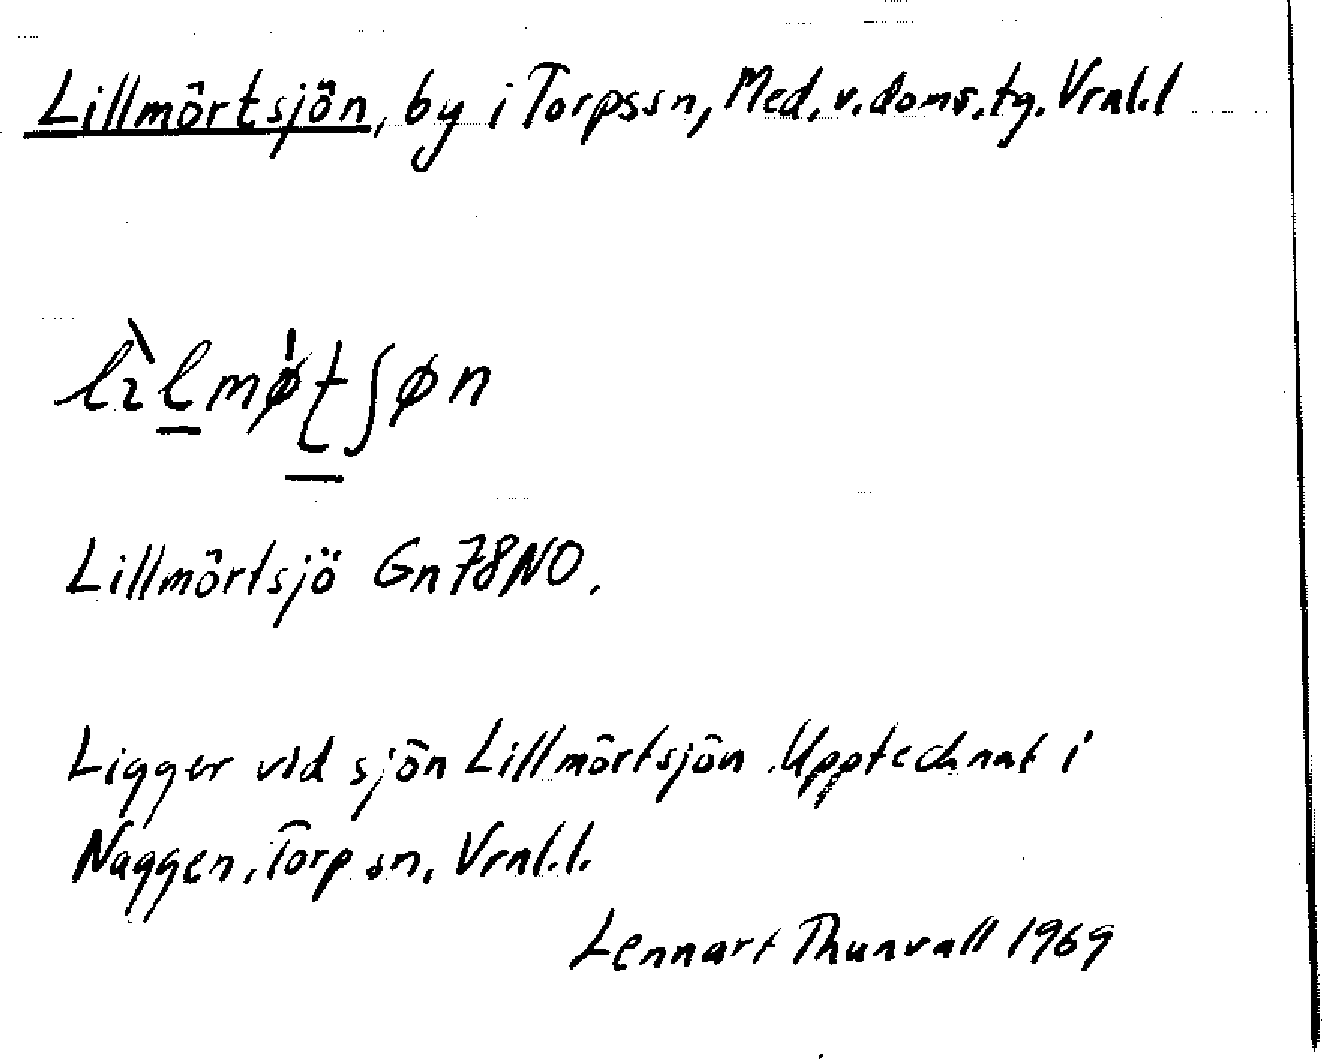 Lillmörtsjön, by i Torps sn, Med. v. doms. tg. Vrnl. l
lìl̠mø̍ʈ̠ʃøn
Lillmörtsjö Gn 78 NO.
Ligger vid sjön Lillmörtsjön. Upptecknat i
Naggen, Torp sn, Vrnl. l.
Lennart Thunvall 1969